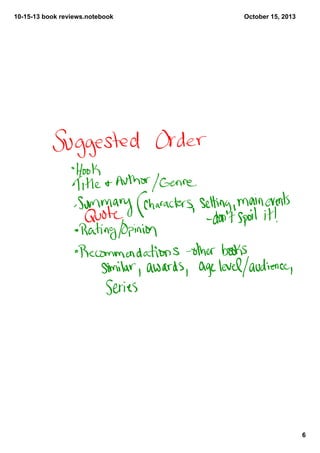 10-15-13 book reviews.notebook
October 15, 2013
Suggested Order
• Hook
• Title + Author/Genre
• Summary (characters, setting, main events
Quote, - don't spoil it!
• Rating/Opinion
• Recommendations - other books
similar, awards, age level/audience,
Series
6